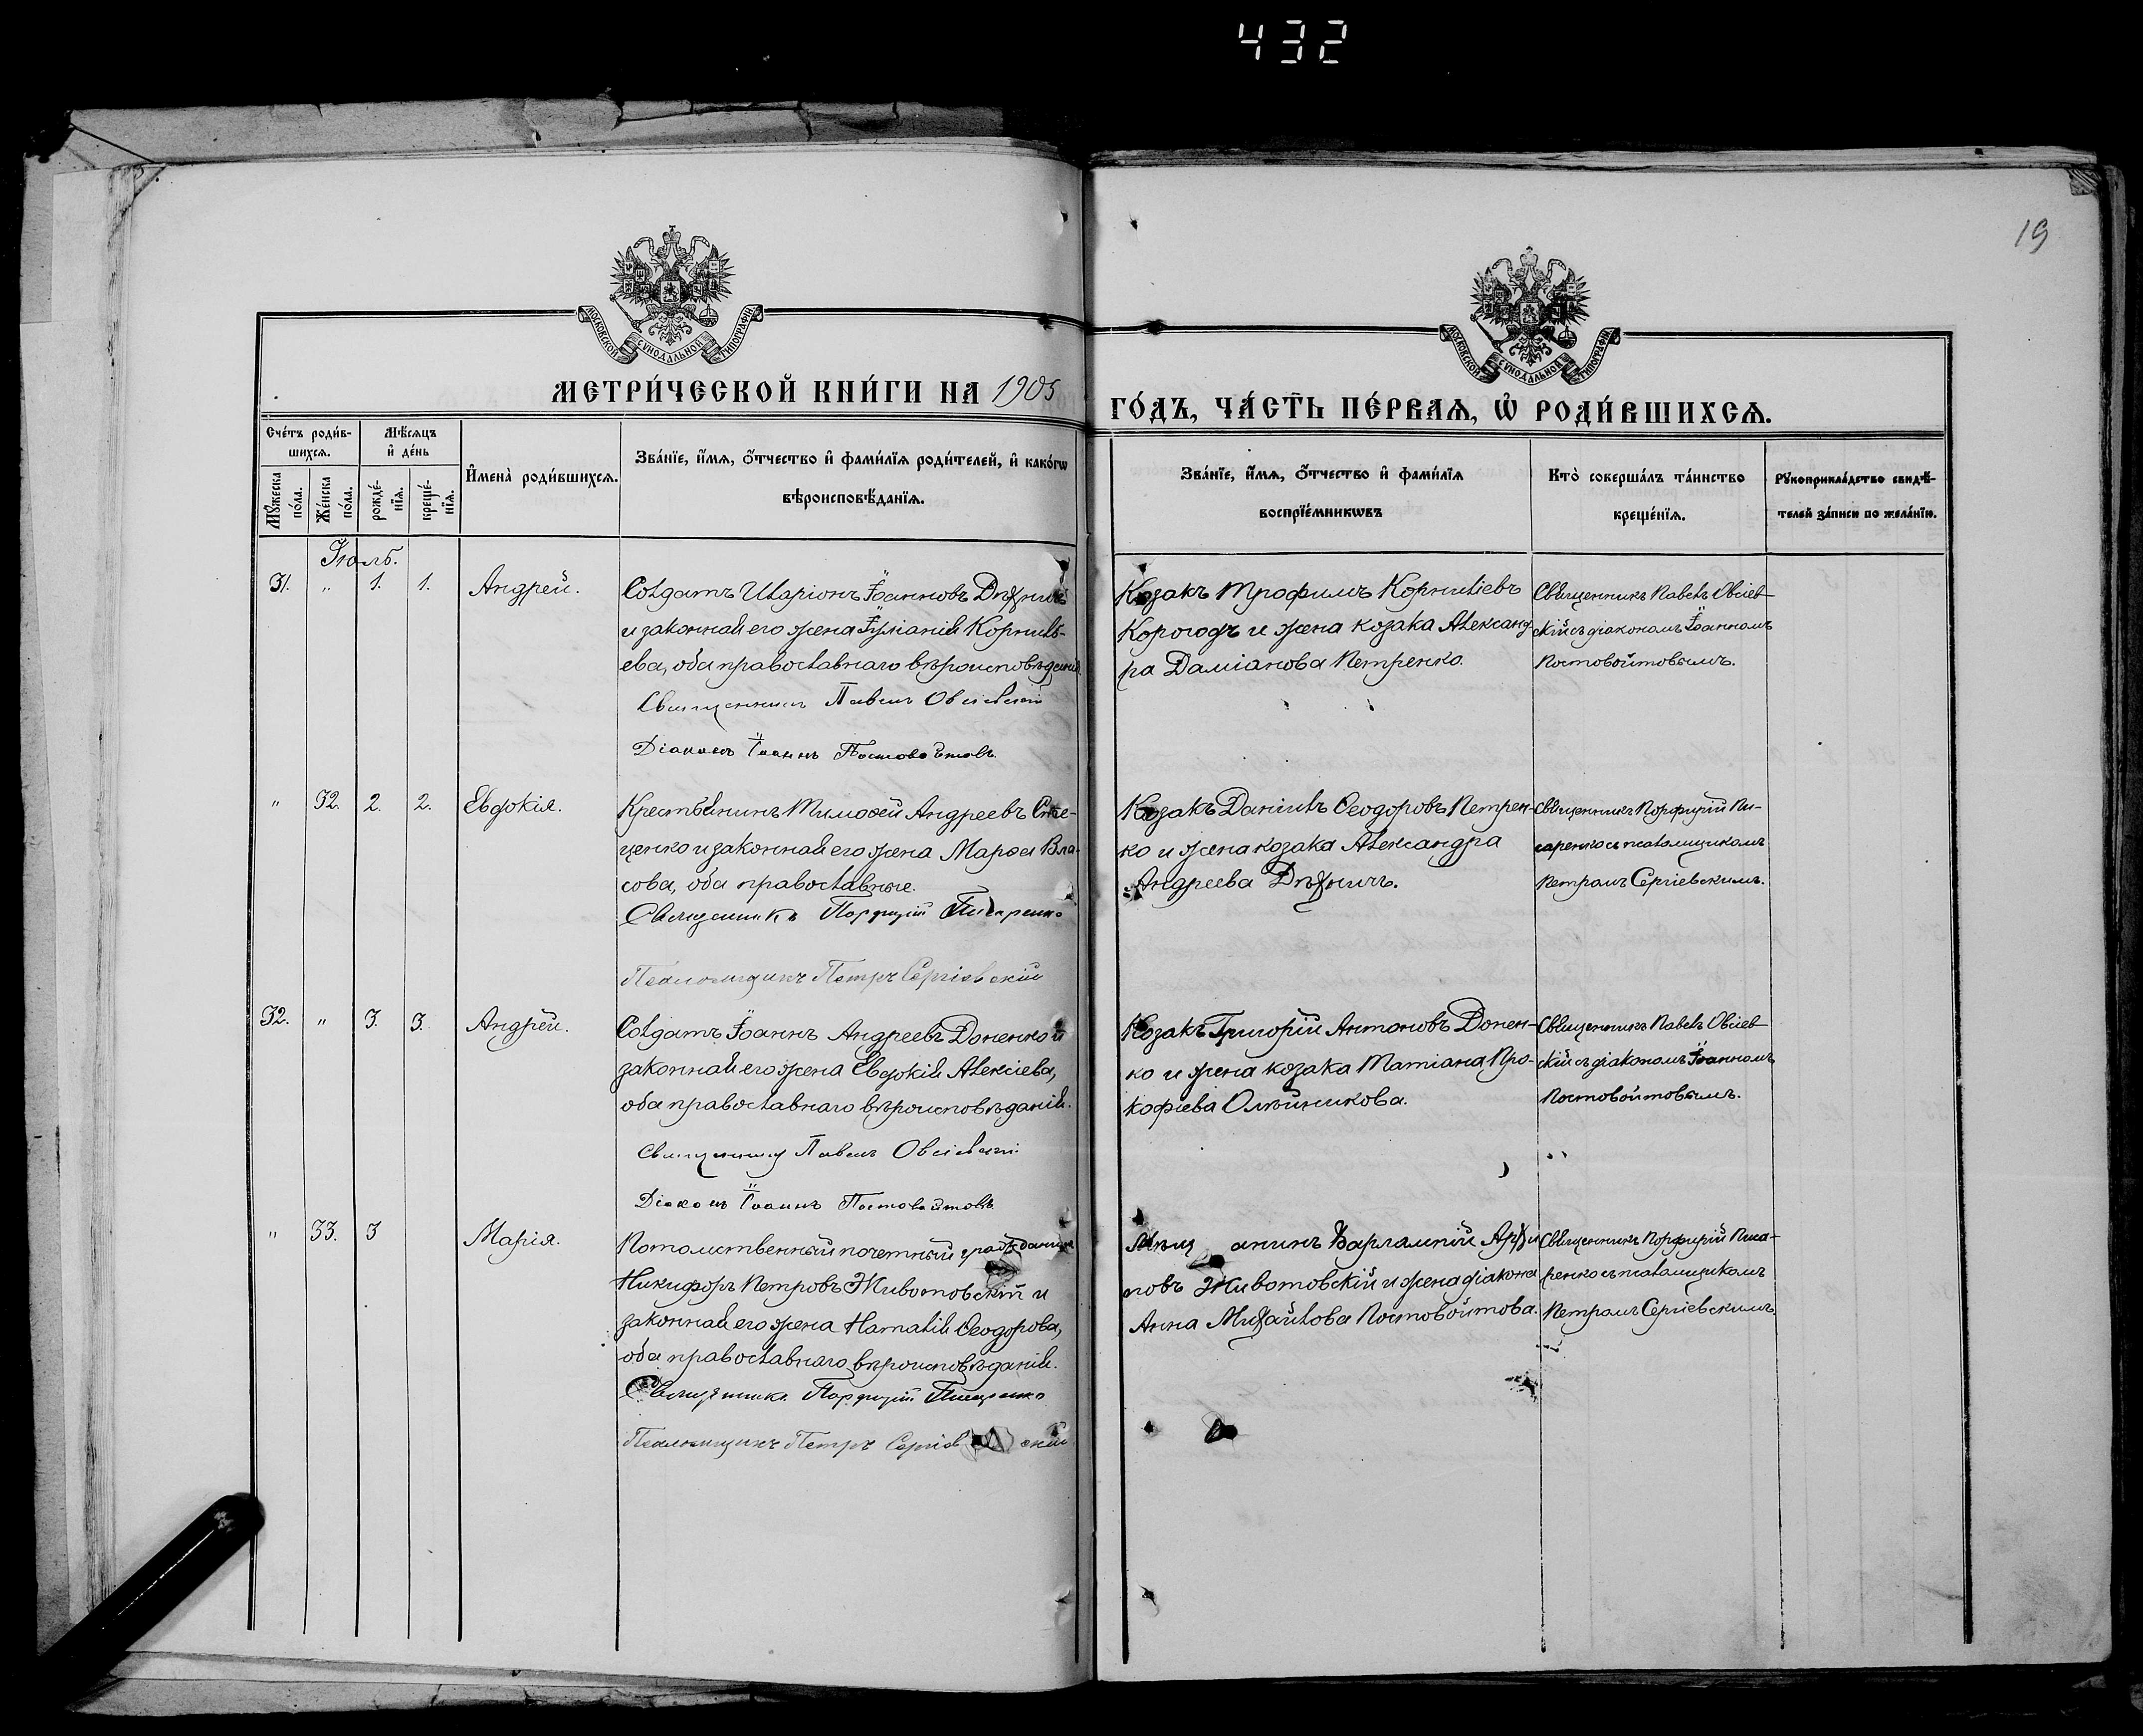 432
19
МОСКОВСКОЙ СУНОДАЛЬНОЙ ТИПОГРАФІИ
МОСКОВСКОЙ СУНОДАЛЬНОЙ ТИПОГРАФІИ
МЕТРИ́ЧЕСКОЙ КНИ́ГИ НА 1905
ГО́ДЪ, ЧА́СТЬ ПЕ́РВАѦ, Ѡ РОДИ́ВШИХСѦ.
Сче́тъ роди́в-
шихсѧ.
Мꙋ́жеска
по́ла.
Же́нска
по́ла.
Мѣ́сѧцъ
и҆ де́нь
рожде́-
нїѧ.
креще́-
нїѧ.
И҆мена̀ роди́вшихсѧ.
Зва́нїе, и҆́мѧ, ѻ҆́тчество и҆ фами́лїѧ роди́телей, и҆ како́гѡ
вѣроисповѣ́данїѧ.
Зва́нїе, и҆́мѧ, ѻ҆́тчество и҆ фами́лїѧ
воспрїе́мникѡвъ
Кто̀ соверша́лъ та́инство
креще́нїѧ.
Рꙋкоприкла́дство свидѣ́-
телей за́писи по жела́нїю.
Іюль.
31. " 1. 1. Андрей.
Солдатъ Иларіонъ Іоанновъ Дѣхничъ
и законная его жена Іуліанія Корниль-
ева, оба православнаго вѣроисповѣданія
Священникъ Павелъ Овсіевскій
Діаконъ Іоаннъ Постовойтовъ.
Козакъ Трофимъ Корниліевъ
Корогодъ и жена козака Александ-
ра Даміанова Петренко.
Священникъ Павелъ Овсіев-
скій съ діакономъ Іоанномъ
Постовойтовымъ.
" 32. 2. 2. Евдокія.
Крестьянинъ Тимоѳей Андреевъ Сте-
ценко и законная его жена Марѳа Вла-
сова, оба православные.
Священникъ Порфирій Писаренко
Псаломщикъ Петръ Сергіевскій
Козакъ Даніилъ Ѳеодоровъ Петрен-
ко и жена козака Александра
Андреева Дѣхничъ.
Священникъ Порфирій Пи-
саренко съ псаломщикомъ
Петромъ Сергіевскимъ.
32. " 3. 3. Андрей.
Солдатъ Іоаннъ Андреевъ Доненко и
законная его жена Евдокія Алексіева,
оба православнаго вѣроисповѣданія.
Священникъ Павелъ Овсіевскій
Діаконъ Іоаннъ Постовойтовъ
Козакъ Григорій Антоновъ Донен-
ко и жена козака Татіана Про-
кофіева Олѣйникова.
Священникъ Павелъ Овсіев-
скій съ діакономъ Іоанномъ
Постовойтовымъ.
" 33. 3 Марія.
Потомственный почетный гражданинъ
Никифоръ Петровъ Животовскій и
законная его жена Наталія Ѳеодорова,
оба православнаго вѣроисповѣданія.
Священникъ Порфирій Писаренко
Псаломщикъ Петръ Сергіевскій
Мѣщанинъ Варлампій Архи-
повъ Животовскій и жена діакона
Анна Михайлова Постовойтова.
Священникъ Порфирій Писа-
ренко съ псаломщикомъ
Петромъ Сергіевскимъ